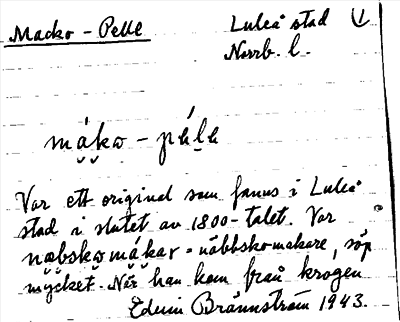 Macko - Pelle
Luleå stad
Norrb. l.
máko - pęlę
Var ett original som fanns i Luleå
stad i slutet av 1800-talet. Var
næbskomákar = näbbskomakare, söp
mycket. När han kom från krogen
Edvin Brännström 1943.